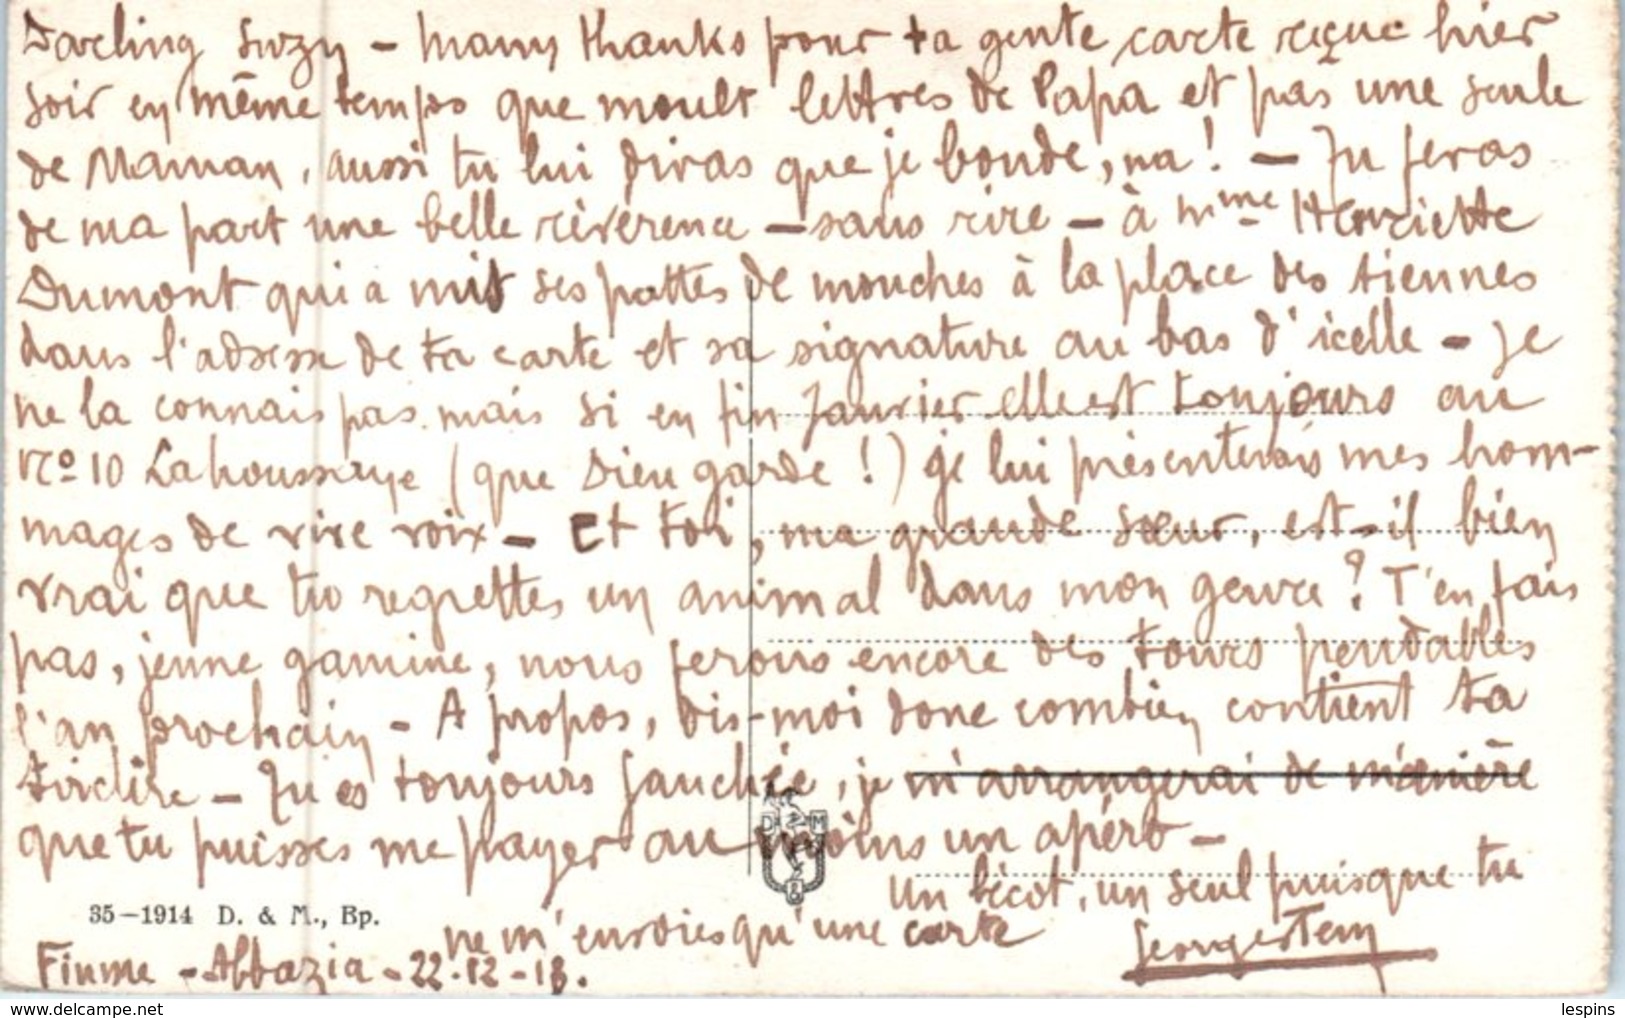 Darling Suzy – many thanks pour ta gente carte reçue hier
soir en même temps que moult lettres de Papa et pas une seule
de Maman, aussi tu lui diras que je boude, na! – Tu feras
de ma part une belle révérence – sans rire – à Mme Henriette
Dumont qui a mis ses pattes de mouches à la place des tiennes
dans l'adresse de ta carte et sa signature au bas d'icelle – Je
ne la connais pas mais si en fin Janvier elle est toujours au
No 10 Lahoussaye (que Dieu garde!) je lui présenterais mes hom-
mages de vive voix – Et toi, ma grande sœur, est-il bien
vrai que tu regrettes un animal dans mon genre? T'en fais
pas, jeune gamine, nous ferons encore des tours pendables
l'an prochain – A propos, dis-moi donc combien contient ta
tirelire – Tu es toujours fauchée, je m'arrangerai de manière
que tu puisses me payer au moins un apéro –
Un bécot, un seul puisque tu
ne m'envoies qu'une carte
Georges
D M
B
35–1914 D. & M., Bp.
Fiume – Abbazia – 22-12-18.
lespins